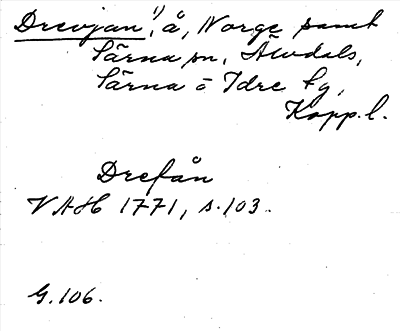 Drevjan¹⁾, å, Norge samt
Särna sn, Älvdals,
Särna o Idre tg,
Kopp. l.
Drefån
VAH 1771, s. 103.
G. 106.